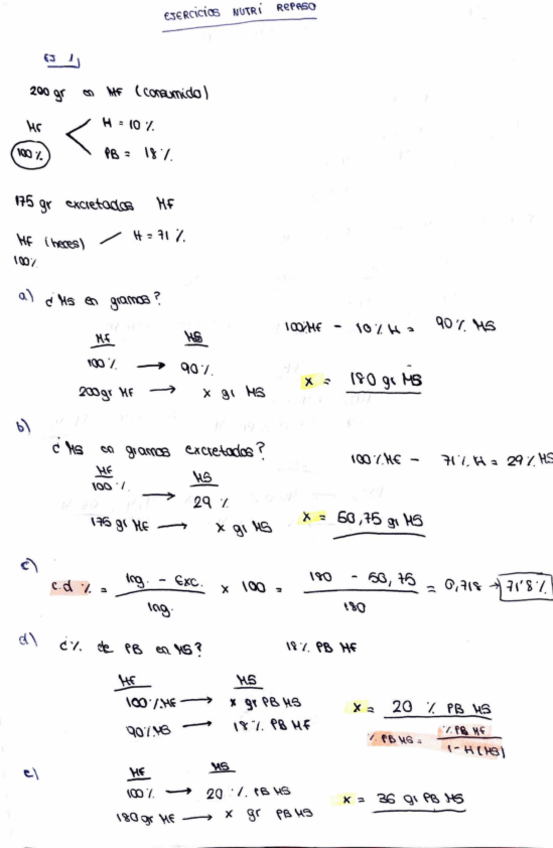 EJERCICIOS NUTRI REPASO
EJ 1
200 gr en MF (consumido)
MF H = 10 %
100 % PB = 18 %
175 gr excretados MF
MF (heces) H = 71 %
100 %
a) ¿MS en gramos?
100% MF - 10% H = 90% MS
MF MS
100 % → 90 %
200 gr MF → x gr MS x = 180 gr MS
b)
¿MS en gramos excretados?
100 % MF - 71 % H = 29 % MS
MF MS
100 % → 29 %
175 gr MF → x gr MS x = 50,75 gr MS
c)
c.d % = Ing. - Exc. / Ing. x 100 = 180 - 50,75 / 180 = 0,718 → 71'8 %
d) ¿% de PB en MS? 18 % PB MF
MF MS
100 % MF → x gr PB MS x = 20 % PB MS
90 % MS → 18 % PB MF % PB MS = % PB MF / 1 - H (MS)
e) MF MS
100 % → 20 % PB MS
180 gr MF → x gr PB MS x = 36 gr PB MS